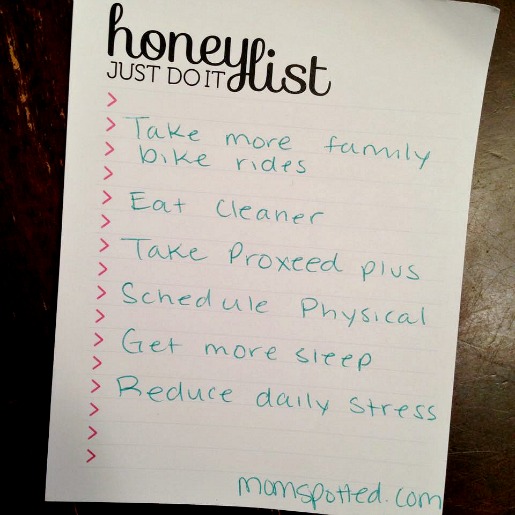 honey list
JUST DO IT
Take more family
bike rides
Eat cleaner
Take Proxeed plus
Schedule Physical
Get more sleep
Reduce daily stress
momspotted.com